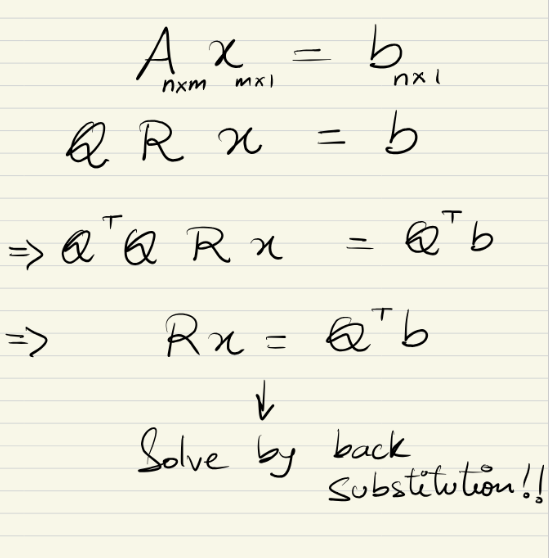 A x = b
n×m m×1 n×1
Q R x = b
⇒ Qᵀ Q R x = Qᵀ b
⇒ R x = Qᵀ b
↓
Solve by back
substitution!!